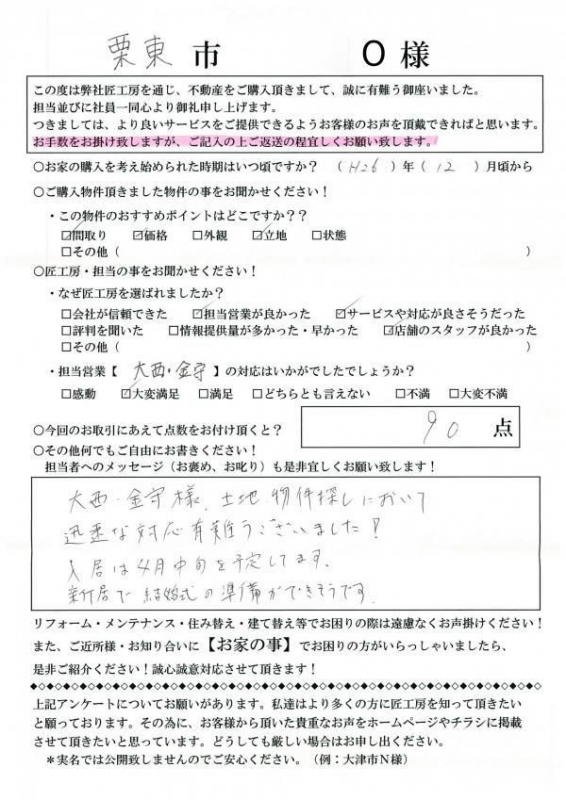 栗東市 O様
この度は弊社匠工房を通じ、不動産をご購入頂きまして、誠に有難う御座いました。
担当並びに社員一同心より御礼申し上げます。
つきましては、より良いサービスをご提供できるようお客様のお声を頂戴できればと思います。
お手数をお掛け致しますが、ご記入の上ご返送の程宜しくお願い致します。
○お家の購入を考え始められた時期はいつ頃ですか？ （H26）年（12）月頃から
○ご購入物件頂きました物件の事をお聞かせください！
・この物件のおすすめポイントはどこですか？？
☑間取り ☑価格 □外観 ☑立地 □状態
□その他（ ）
○匠工房・担当の事をお聞かせください！
・なぜ匠工房を選ばれましたか？
□会社が信頼できた ☑担当営業が良かった ☑サービスや対応が良さそうだった
□評判を聞いた □情報提供量が多かった・早かった ☑店舗のスタッフが良かった
□その他（ ）
・担当営業【大西・金守】の対応はいかがでしたでしょうか？
□感動 ☑大変満足 □満足 □どちらとも言えない □不満 □大変不満
○今回のお取引にあえて点数をお付け頂くと？ 90点
○その他何でもご自由にお書きください！
担当者へのメッセージ（お褒め、お叱り）も是非宜しくお願い致します！
大西・金守様、土地物件探しにおいて
迅速な対応有難うございました！
入居は4月中旬を予定してます。
新居で結婚式の準備ができそうです。
リフォーム・メンテナンス・住み替え・建て替え等でお困りの際は遠慮なくお声掛けください！
また、ご近所様・お知り合いに【お家の事】でお困りの方がいらっしゃいましたら、
是非ご紹介ください！誠心誠意対応させて頂きます！
上記アンケートについてお願いがあります。私達はより多くの方に匠工房を知って頂きたい
と願っております。その為に、お客様から頂いた貴重なお声をホームページやチラシに掲載
させて頂きたいと思っています。どうしても厳しい場合はお申し出ください。
＊実名では公開致しませんのでご安心ください。（例：大津市N様）